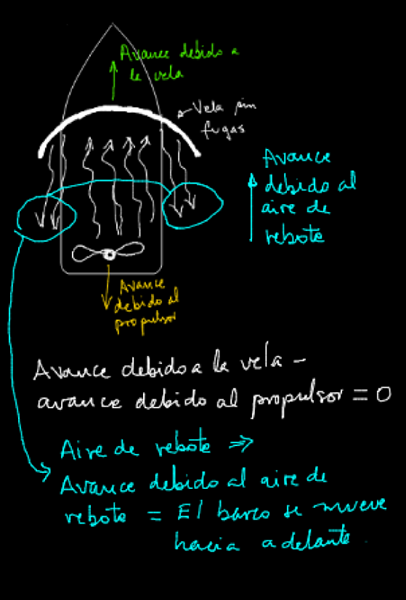 Avance debido a
la vela
Vela sin
fugas
Avance
debido al
aire de
rebote
Avance
debido al
propulsor
Avance debido a la vela –
avance debido al propulsor = 0
Aire de rebote ⇒
Avance debido al aire de
rebote = El barco se mueve
hacia adelante.